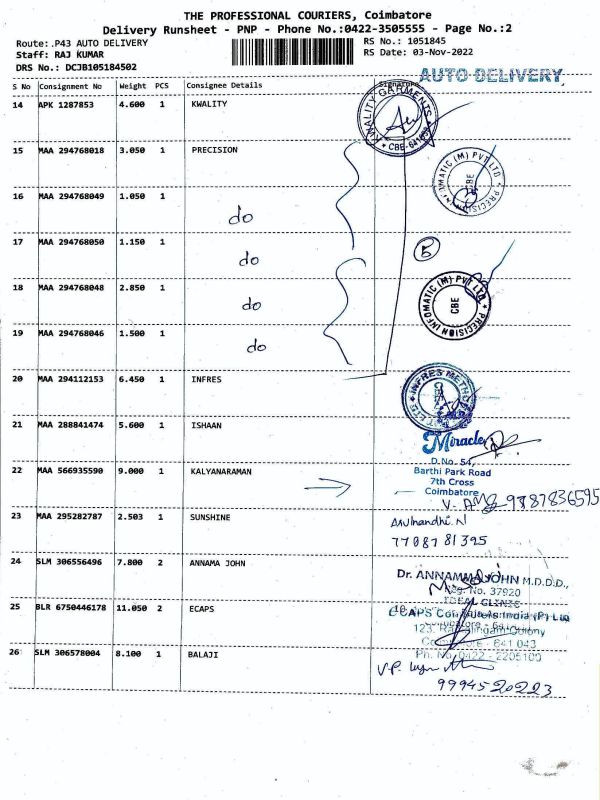 THE PROFESSIONAL COURIERS, Coimbatore
Delivery Runsheet - PNP - Phone No.:0422-3505555 - Page No.:2
Route:.P43 AUTO DELIVERY
RS No.: 1051845
Staff: RAJ KUMAR
RS Date: 03-Nov-2022
DRS No.: DCJB105184502
AUTO DELIVERY
S No Consignment No Weight PCS Consignee Details Signature
14 APK 1287853 4.600 1 KWALITY
KWALITY GARMENTS * CBE-
15 MAA 294768018 3.050 1 PRECISION
PRECISION INFOMATIC (M) PVT LTD * CBE
16 MAA 294768049 1.050 1 do
17 MAA 294768050 1.150 1 do
5
18 MAA 294768048 2.850 1 do
PRECISION INFOMATIC (M) PVT LTD * CBE
19 MAA 294768046 1.500 1 do
20 MAA 294112153 6.450 1 INFRES
INFRES METHODEX
21 MAA 288841474 5.600 1 ISHAAN
Miracle
D.No. 54,
Barthi Park Road
7th Cross
Coimbatore
22 MAA 566935590 9.000 1 KALYANARAMAN
23 MAA 295282787 2.503 1 SUNSHINE
7708781395
24 SLM 306556496 7.800 2 ANNAMA JOHN
Dr. ANNAMMA JOHN M.D.D.D.,
Reg. No. 37920
25 BLR 6750446178 11.050 2 ECAPS
ECAPS Computers India (P) Ltd
26 SLM 306578004 8.100 1 BALAJI
Ph. No. 0422 - 2205100
9994520223